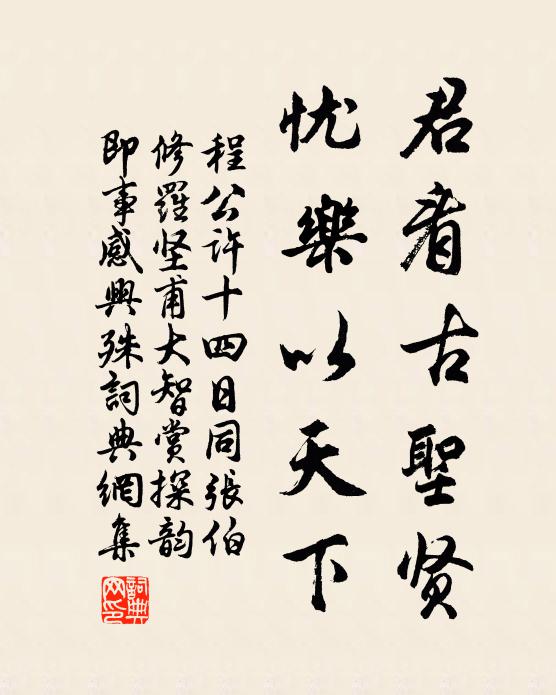 君看古聖贤
忧樂以天下
程公许十四日同張伯
修羅坚甫大智赏探韵
即事感興殊詞典網集
詞典網印